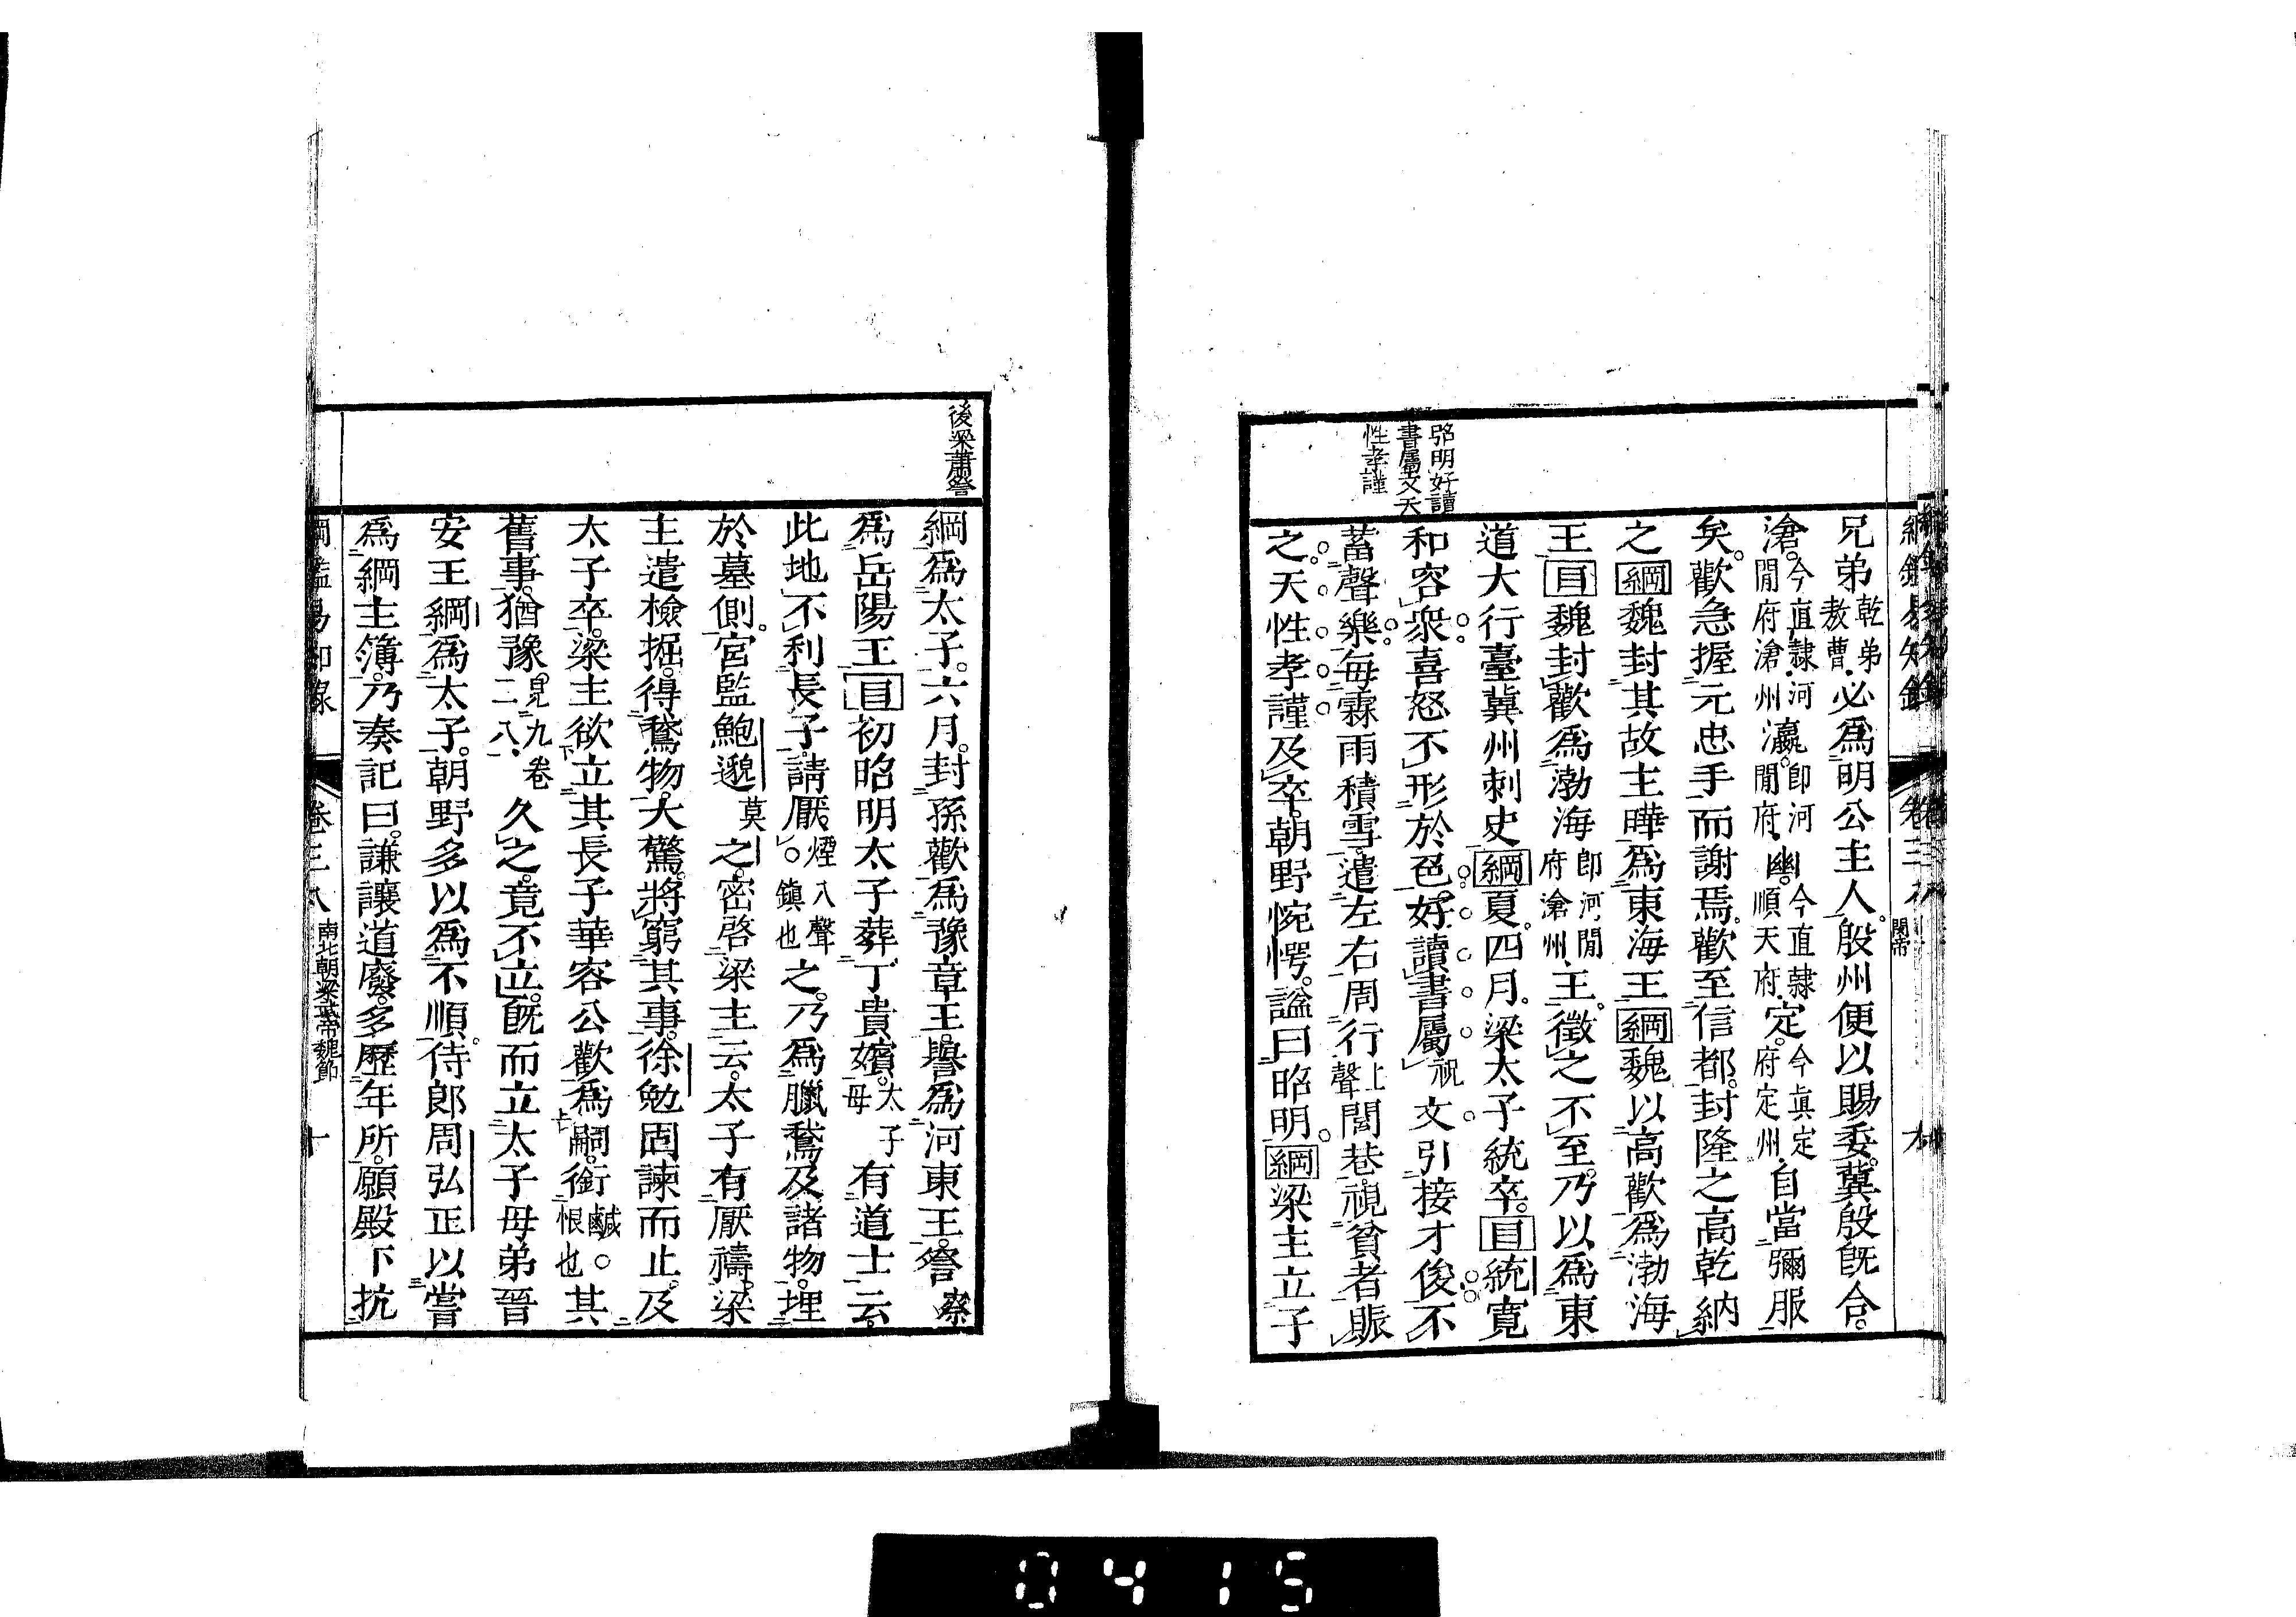 兄弟乾弟敖曹必爲明公主人。殷州便以賜委。冀殷旣合。
滄。今直隸河閒府滄州瀛。卽河閒府幽。今直隸順天府定。今眞定府定州自當彌服
矣。歡急握元忠手而謝焉。歡至信都。封隆之高乾納
之綱魏封其故主曄爲東海王綱魏以高歡爲渤海
王目魏封歡爲渤海卽河閒府滄州王。徵之不至。乃以爲東
道大行臺冀州刺史綱夏。四月。梁太子統卒。目統寬
和容衆喜怒不形於色。好讀書屬祝文引接才俊不
蓄聲樂每霖雨積雪。遣左右周行上聲閭巷。視貧者賑
之。天性孝謹及卒。朝野惋愕。謚曰昭明。綱梁主立子
昭明好讀
書屬文天
性孝謹
卷三八
閔帝
後梁蕭詧
綱爲太子。六月。封孫歡爲豫章王。譽爲河東王。詧察
爲岳陽王目初昭明太子葬丁貴嬪。太子母有道士云。
此地不利長子。請厭。煙入聲。鎮也之。乃爲臘鵞及諸物。埋
於墓側。宮監鮑邈莫之。密啓梁主云。太子有厭禱。梁
主遣檢掘。得鵞物。大驚。將窮其事。徐勉固諫而止。及
太子卒。梁主欲立其長子華容公歡爲嗣。銜鹹。恨也其
舊事。猶豫。見九卷二八久之。竟不立。旣而立太子母弟晉
安王綱爲太子。朝野多以爲不順。侍郎周弘正以嘗
爲綱主簿。乃奏記曰。謙讓道廢。多歷年所。願殿下抗
卷三八 南北朝梁武帝魏節 十
0415